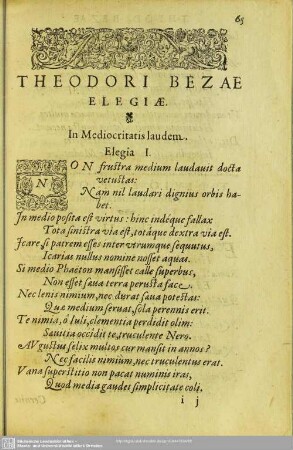 65
THEODORI BEZAE
ELEGIÆ.
In Mediocritatis laudem.
Elegia I.
NON frustra medium laudauit docta
vetustas:
Nam nil laudari dignius orbis ha-
bet.
In medio posita est virtus: hinc indéque fallax
Tota sinistra via est, totáque dextra via est.
Icare si patrem esses inter vtrumque sequutus,
Icarias nullus nomine nosset aquas.
Si medio Phaeton mansisset calle superbus,
Non esset sæua terra perusta face.
Nec lenis nimium, nec durat sæua potestas:
Quæ medium seruat, sola perennis erit.
Te nimia, ô Iuli, clementia perdidit olim:
Sæuitia occidit te, truculente Nero.
Augustus felix multos cur mansit in annos?
Nec facilis nimium, nec truculentus erat.
Vana superstitio non pacat numinis iras,
Quod media gaudet simplicitate coli.
i j